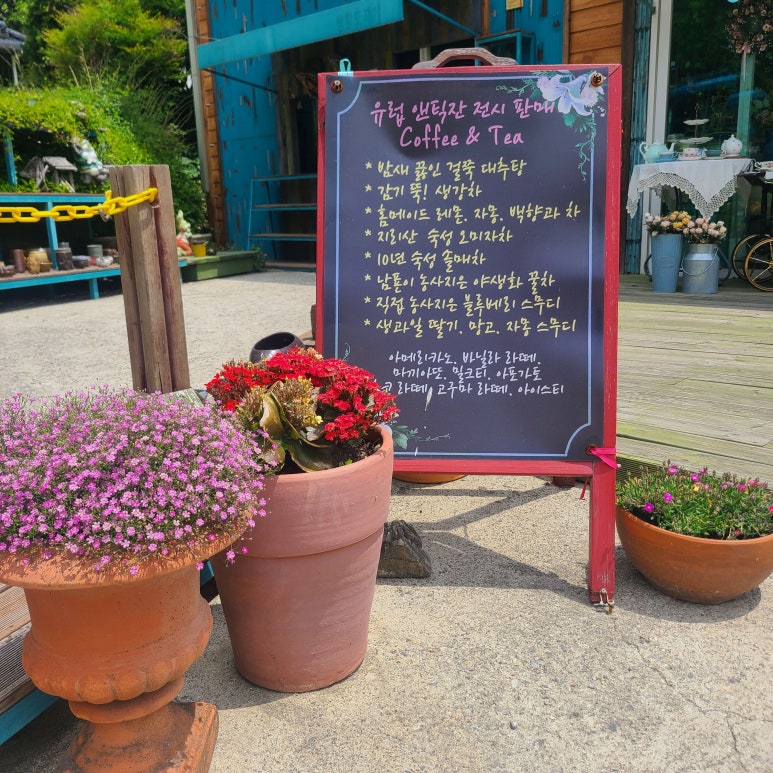 유럽 앤틱잔 전시 판매
Coffee & Tea
* 밤새 끓인 걸쭉 대추탕
* 감기 뚝! 생강차
* 홈메이드 레몬, 자몽, 백향과 차
* 지리산 숙성 오미자차
* 10년 숙성 솔매차
* 남편이 농사지은 야생화 꿀차
* 직접 농사지은 블루베리 스무디
* 생과일 딸기, 망고, 자몽 스무디
아메리카노, 바닐라 라떼,
마끼아또, 밀크티, 아포가토
라떼, 고구마 라떼, 아이스티